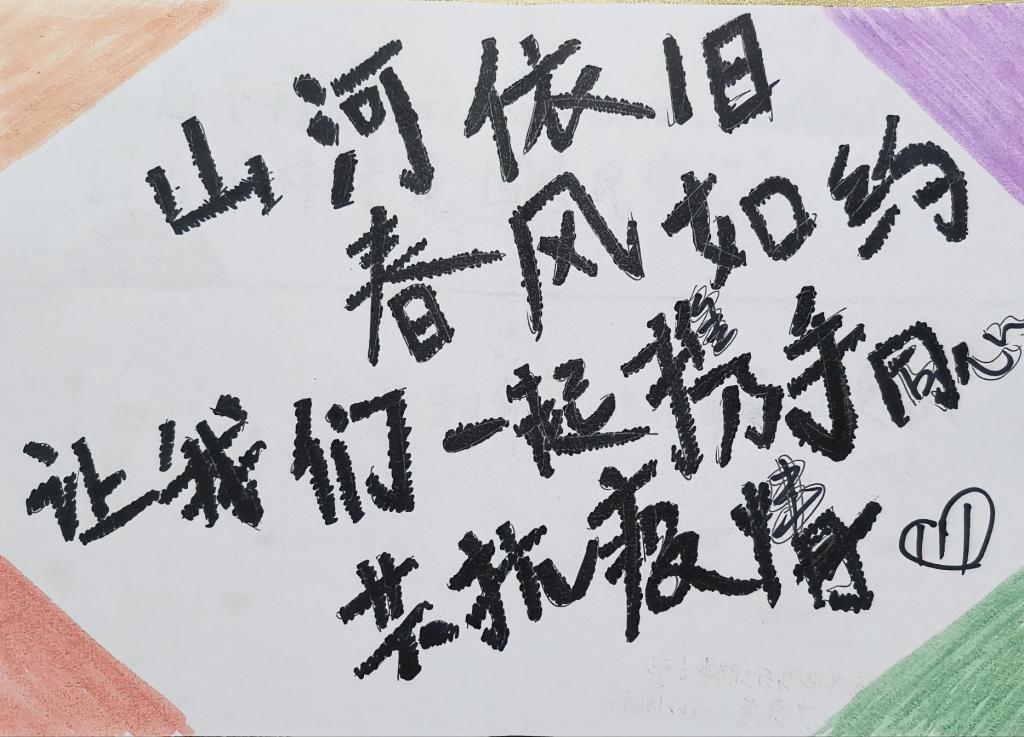 山河依旧
春风如约
让我们一起携手同心
共抗疫情